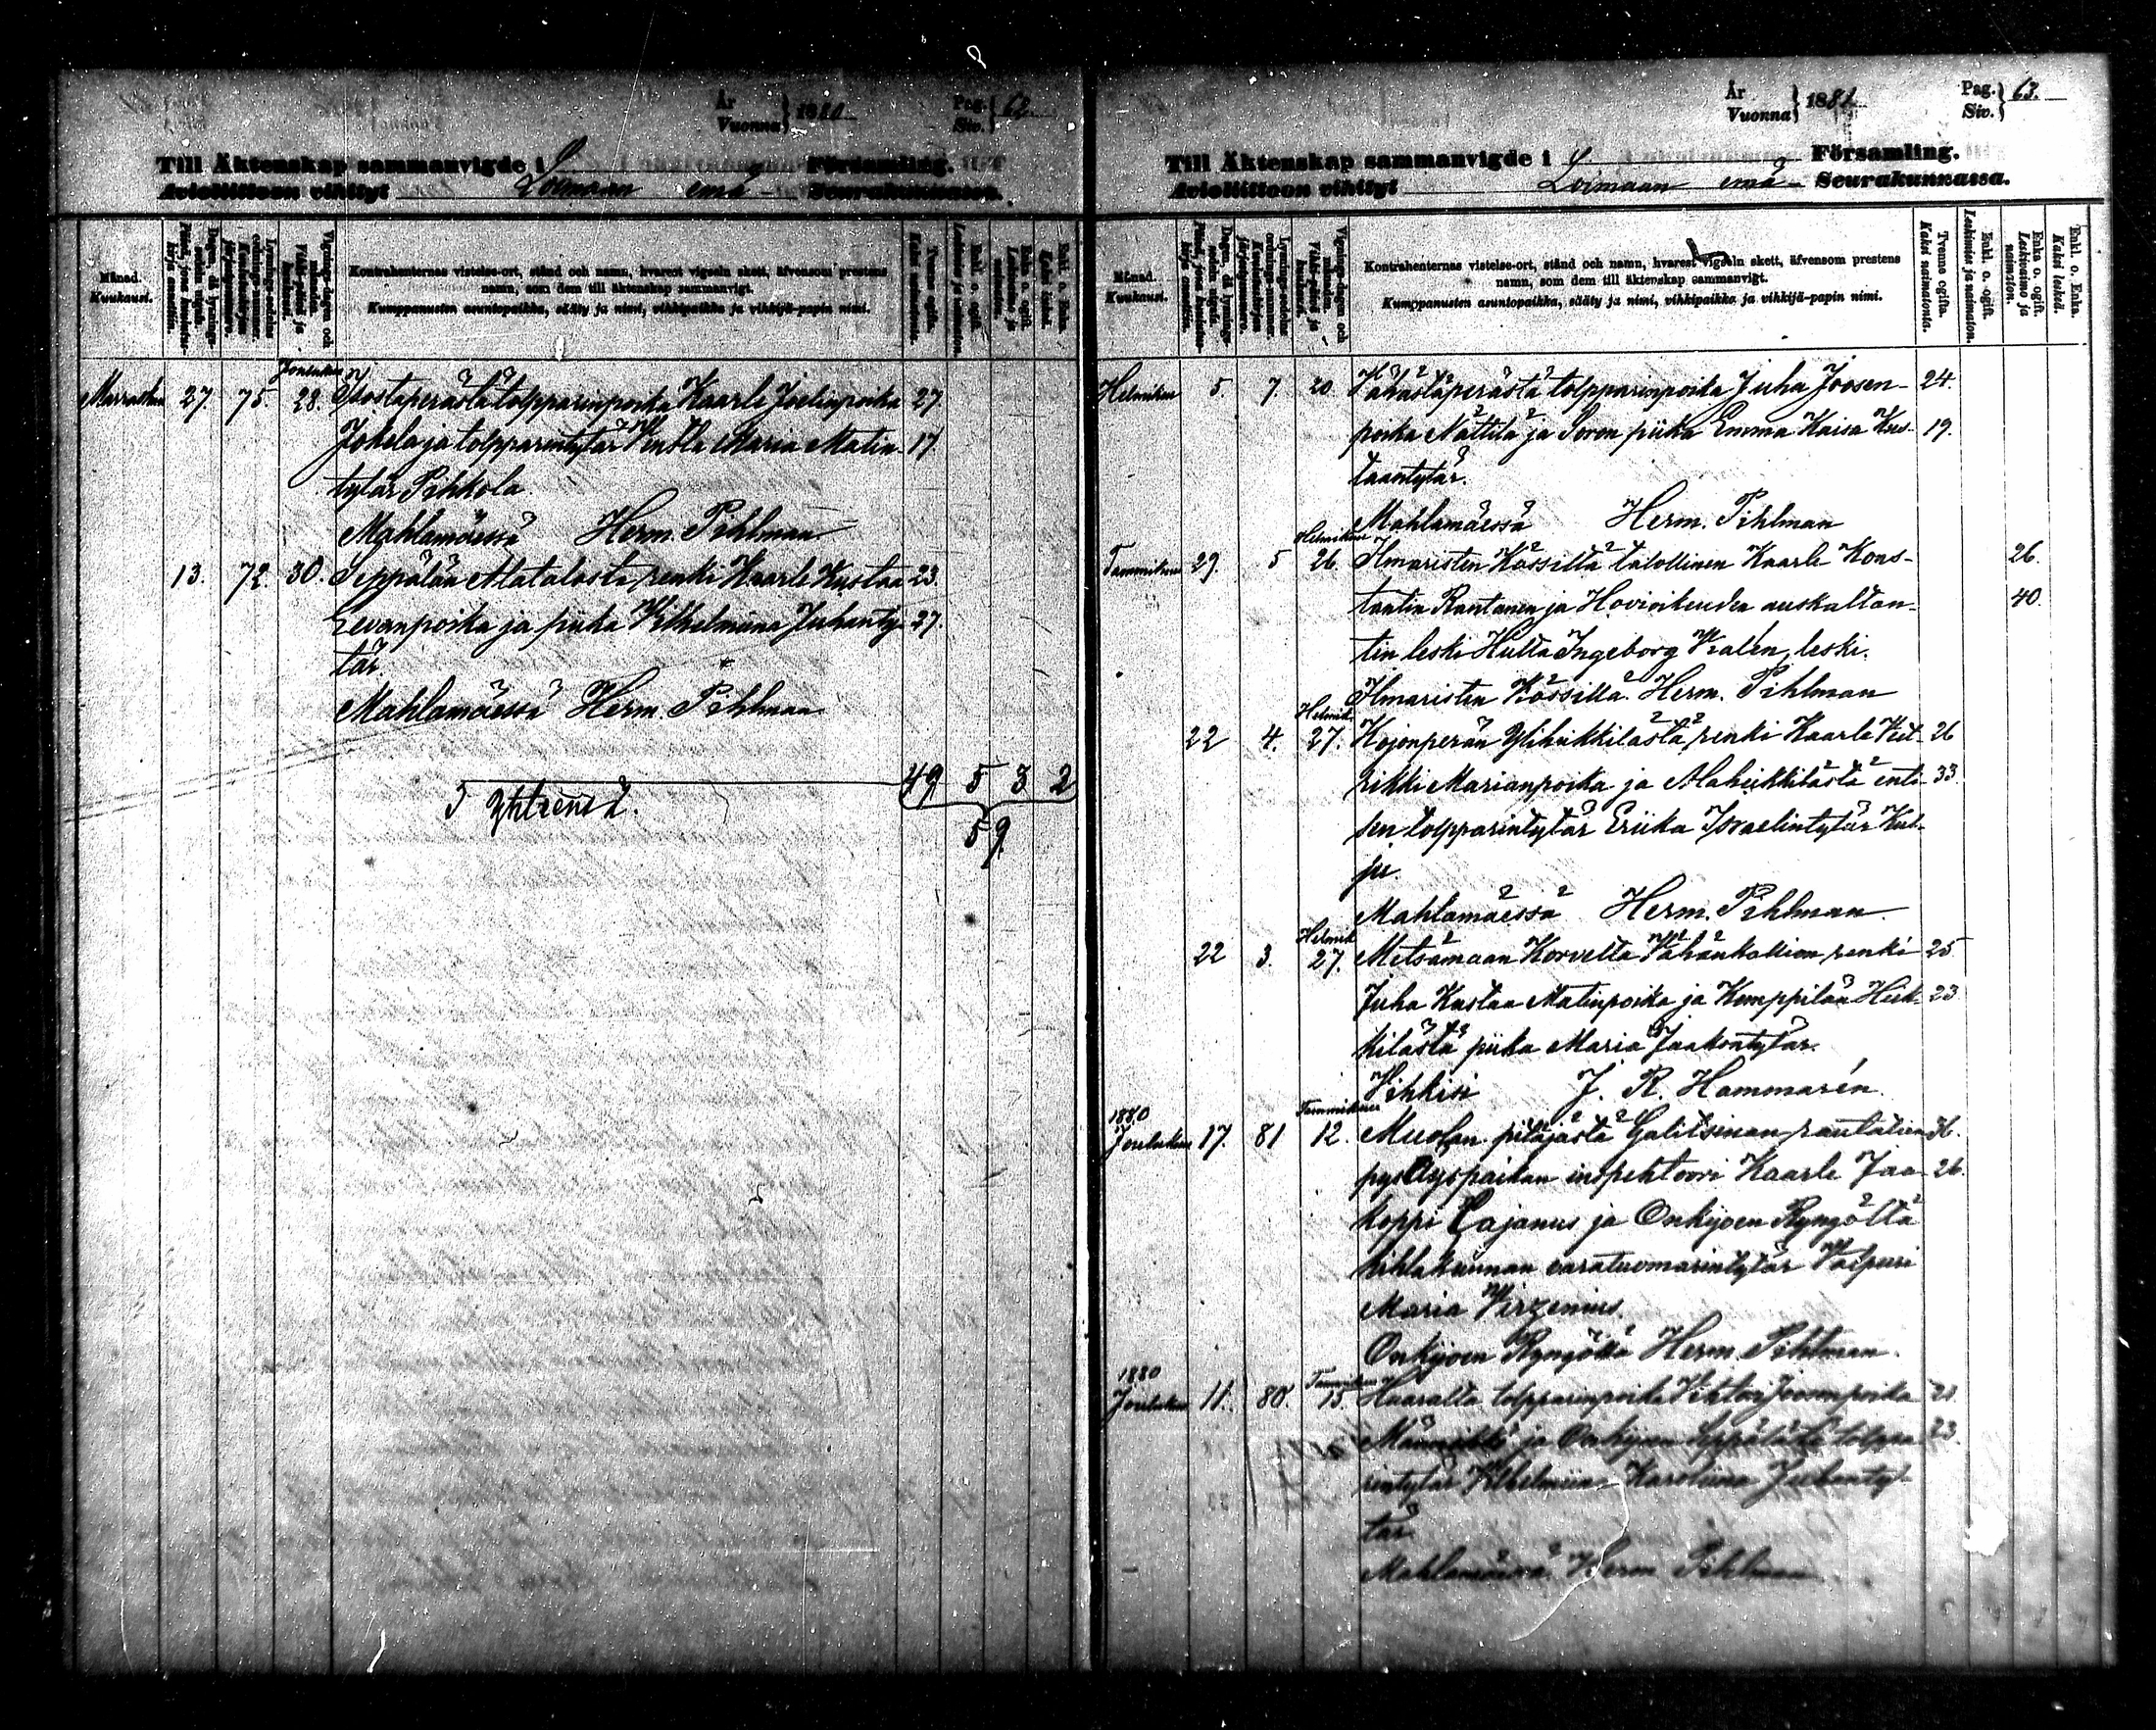 År Vuonna } 1880 Pag. Siv. } 62.
Till Äktenskap sammanvigde i Församling.
Avioliittoon vihityt Loimaan emä- Seurakunnassa.
Månad. Kuukausi.
Kontrahenternas vistelse-ort, stånd och namn, hvarest vigseln skett, äfvensom prestens
namn, som dem till äktenskap sammanvigt.
Kumppanusten asuntopaikka, sääty ja nimi, vihkipaikka ja vihkijä-papin nimi.
Joulukuu
Marraskuu 27. 75. 28. Isostaperästä tolpparinpoika Kaarle Joelinpoika 27
Jokela ja tolpparintytär Maria Matin- 17.
tytär Pihkola.
Mahlamäessä Herm. Pihlman
13. 72. 30. Seppälän Alatalosta renki Kaarle Kustaa 23.
Eevanpoika ja piika Wilhelmiina Juhanty- 27.
tär.
Mahlamäessä Herm. Pihlman
49 5 3 2
Yhteensä.
59
År Vuonna } 1881 Pag. Siv. } 63.
Till Äktenskap sammanvigde i Församling.
Avioliittoon vihityt Loimaan emä- Seurakunnassa.
Månad. Kuukausi.
Kontrahenternas vistelse-ort, stånd och namn, hvarest vigseln skett, äfvensom prestens
namn, som dem till äktenskap sammanvigt.
Kumppanusten asuntopaikka, sääty ja nimi, vihkipaikka ja vihkijä-papin nimi.
Tvenne ogifta. Kaksi naimatonta.
Enkl. o. ogift. Leskimies ja naimaton.
Enka o. ogift. Leskivaimo ja naimaton.
Enkl. o. Enka. Kaksi leskeä.
Helmikuu 5. 7. 20. Vähästäperästä tolpparinpoika Juha Joosen- 24.
poika Nättilä ja Soron piika Emma Kaisa Kus- 19.
taantytär.
Mahlamäessä Herm. Pihlman
Helmikuu
Tammikuu 29. 5 26. Ilmaristen Kössillä talollinen Kaarle Kons- 26.
tantin Rantanen ja Hovioikeuden auskultan- 40.
tin leski Hulta Ingeborg Walen, leski.
Ilmaristen Kössillä. Herm. Pihlman
Helmik.
22 4. 27. Kojonperän Yliheikkilästä renki Kaarle Viet- 26
rikki Marianpoika ja Alaheikkilästä enti- 33.
sen tolpparintytär Eriika Israelintytär Kul-
ju.
Mahlamäessä Herm. Pihlman
Helmik
22 3. 27. Metsämaan Korvelta Vähänkallion renki 25
Juha Kustaa Matinpoika ja Kemppilän Heik- 23
kilästä piika Maria Jaakontytär.
Vihkisi J. R. Hammarén.
1880 Tammikuu
Joulukuu 17. 81 12. Muolan pitäjästä Galitsinan rautatien 36.
pysäyspaikan inspehtoori Kaarle Jaa- 26.
koppi Cajanus ja Onkijoen Ryngöltä
kihlakunnan varatuomarintytär Valpuri
Maria Wirzenius.
Onkijoen Ryngöllä Herm. Pihlman.
1880 Tammikuu
Joulukuu 11. 80. 15. Haaralta tolpparinpoika Vihtori Joonanpoika 21
Männikkö ja Onkijoen Seppälästä tolppa- 23.
rintytär Wilhelmiina Karoliina Juhanty-
tär
Mahlamäessä. Herm. Pihlman